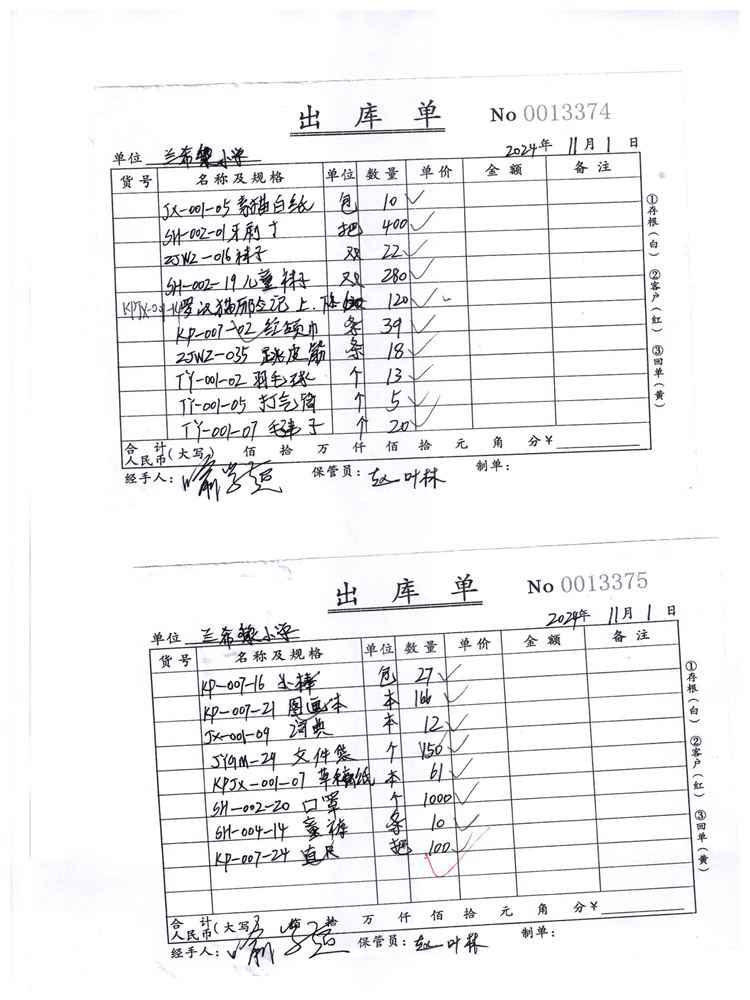 出库单 No 0013374
单位 兰希黎小学 2024年 11月 1日
货号 名称及规格 单位 数量 单价 金额 备注
JX-001-05 素描白纸 包 10
SH-002-01 牙刷 把 400
ZJWZ-016 袜子 双 22
SH-002-19 儿童袜子 双 280
罗汉猫 记 上. 120
KP-007-02 红领巾 条 39
ZJWZ-035 皮筋 条 18
TY-001-02 羽毛球 个 13
TY-001-05 打气筒 个 5
TY-001-07 毛毽子 个 20
合计
人民币(大写) 佰 拾 万 仟 佰 拾 元 角 分 ¥
经手人: 保管员: 赵叶林 制单:
①存根(白) ②客户(红) ③回单(黄)
出库单 No 0013375
单位 兰希黎小学 2024年 11月 1日
货号 名称及规格 单位 数量 单价 金额 备注
KP-007-16 小棒 包 27
KP-007-21 图画本 本 166
JX-001-09 词典 本 12
JYGM-29 文件袋 个 150
KPJX-001-07 草稿纸 本 61
SH-002-20 口罩 个 1000
SH-004-14 童裤 条 10
KP-007-24 直尺 把 100
合计
人民币(大写) 佰 拾 万 仟 佰 拾 元 角 分 ¥
经手人: 保管员: 赵叶林 制单:
①存根(白) ②客户(红) ③回单(黄)